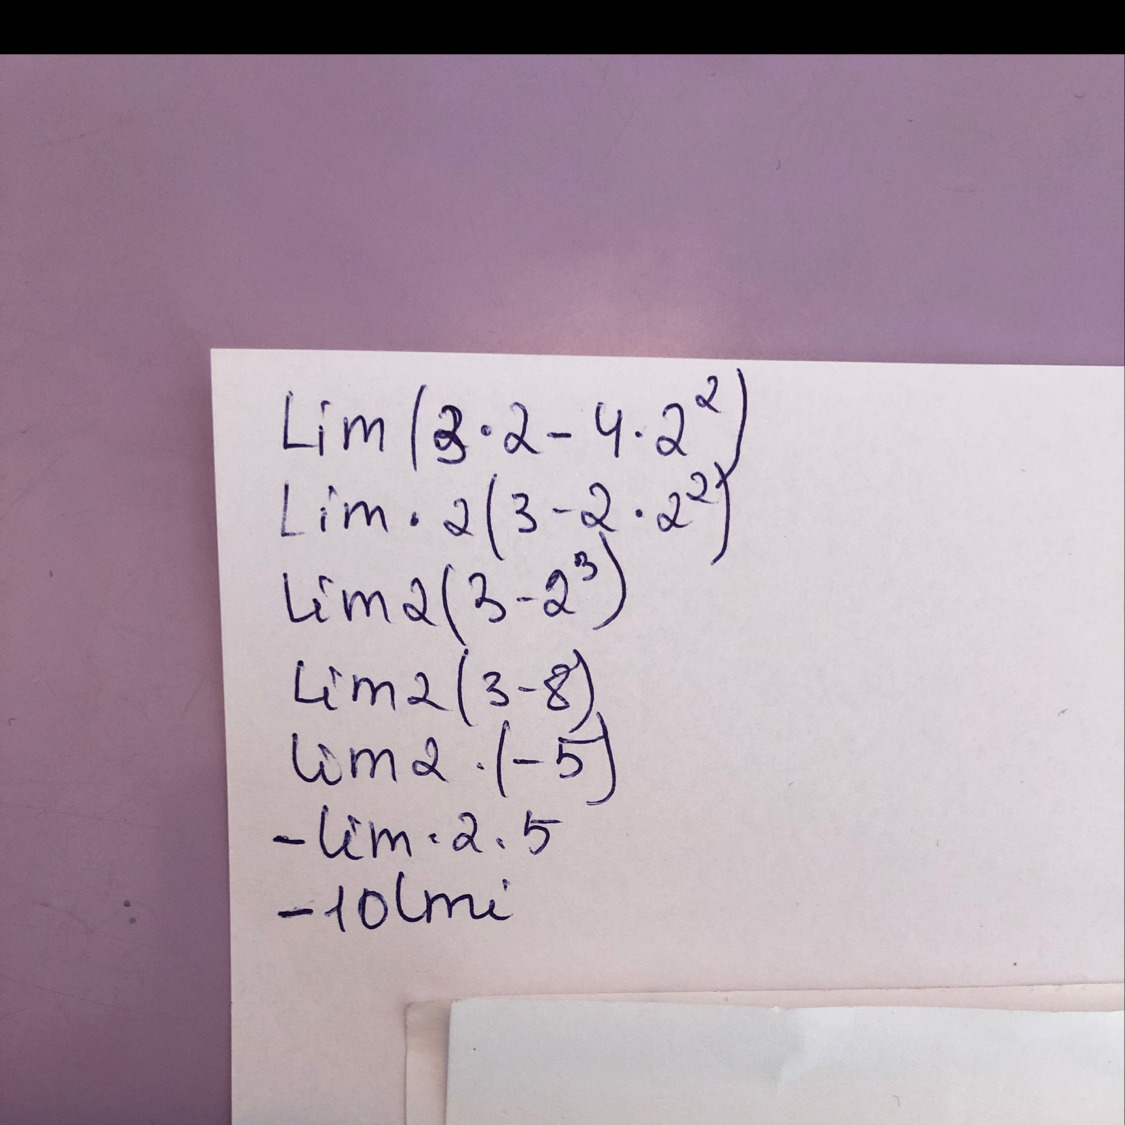 Lim (3·2-4·2²)
Lim · 2(3-2·2²)
Lim 2(3-2³)
Lim 2(3-8)
lim 2 ·(-5)
-lim·2·5
-10lmi